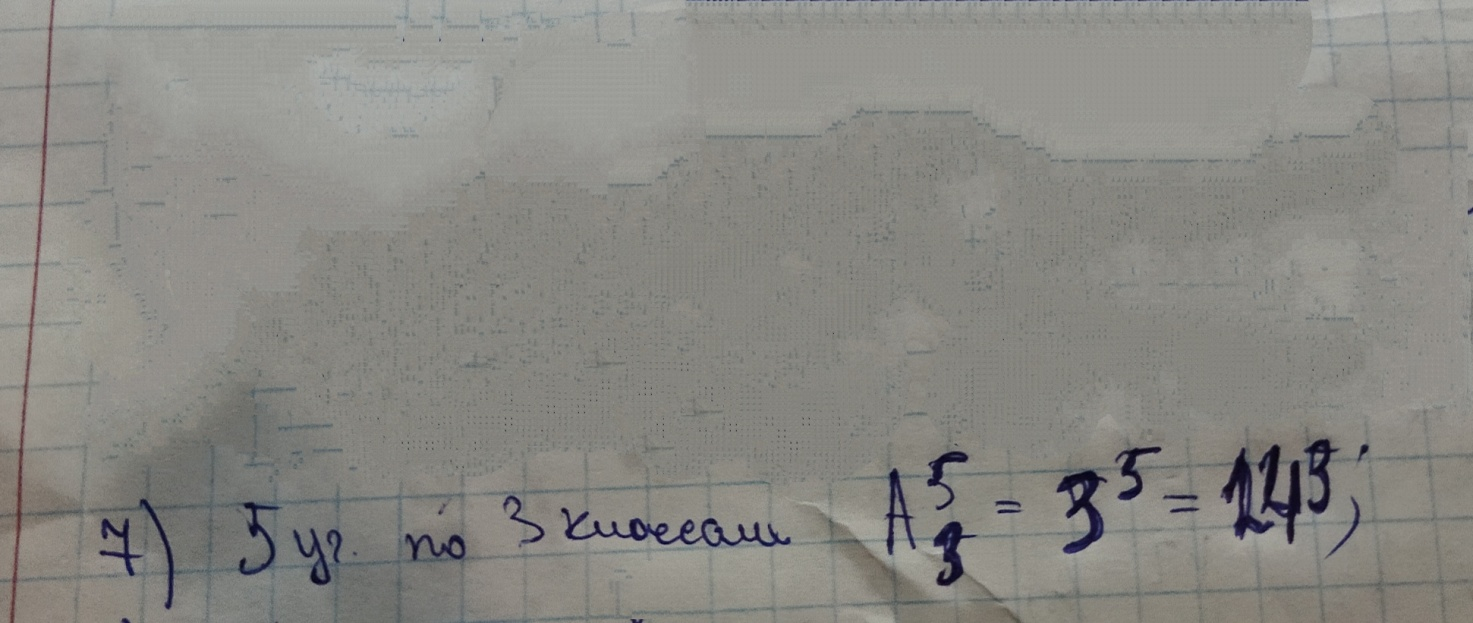 7) 5 уч. по 3 классам A₃⁵ = 3⁵ = 243;